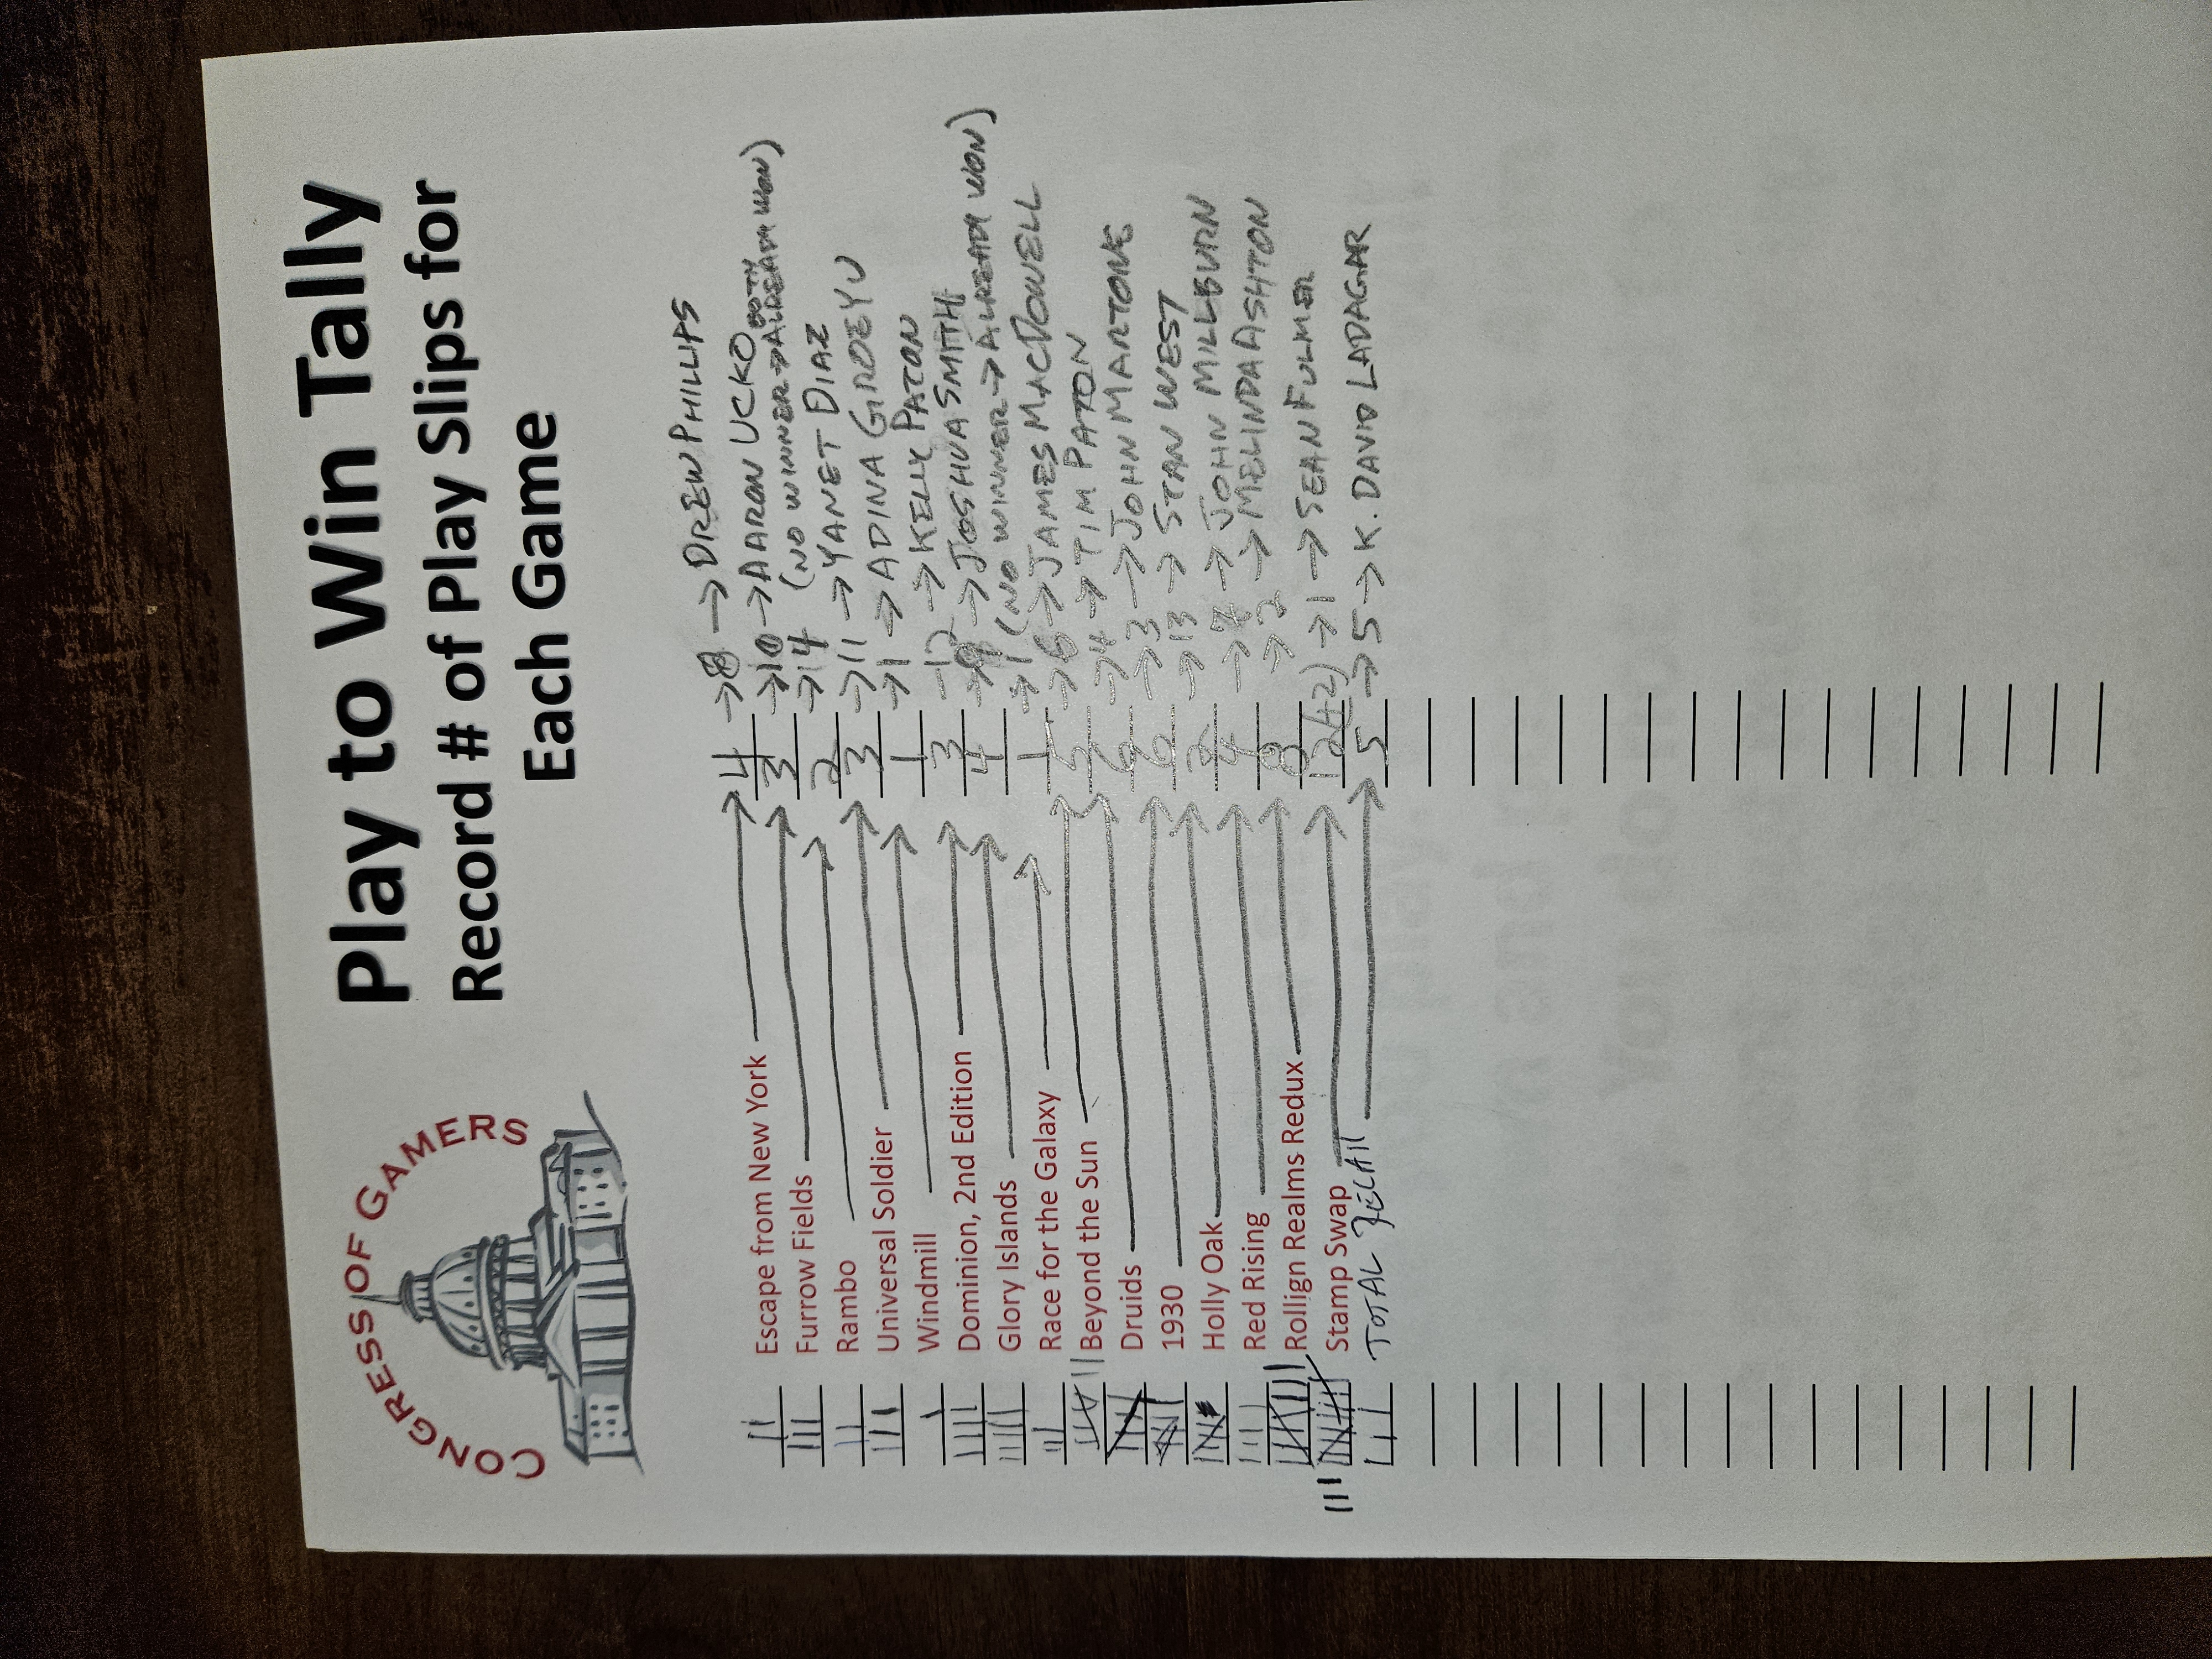 CONGRESS OF GAMERS
Play to Win Tally
Record # of Play Slips for
Each Game
Escape from New York → 4 → 8 → DREW PHILLIPS
Furrow Fields → 3 → 10 → AARON UCKO
Rambo → 2 → 14 (NO WINNER → BOTH ALREADY WON)
Universal Soldier → 3 → 11 → YANET DIAZ
Windmill → 1 → 1 → ADINA GIRDEYU
Dominion, 2nd Edition → 3 → 12 → KELLY PATON
Glory Islands → 4 → 9 → JOSHUA SMITH
Race for the Galaxy → 1 → 1 (NO WINNER → ALREADY WON)
Beyond the Sun → 5 → 6 → JAMES MACDOWELL
Druids → 6 → 4 → TIM PATON
1930 → 6 → 3 → JOHN MARTONE
Holly Oak → 2 → 13 → STAN WEST
Red Rising → 4 → 7 → JOHN MILLBURN
Rollign Realms Redux → 8 → 2 → MELINDA ASHTON
Stamp Swap → 12 (+2) → 1 → SEAN FULMER
TOTAL → 5 → 5 → K. DAVID LADAGAR